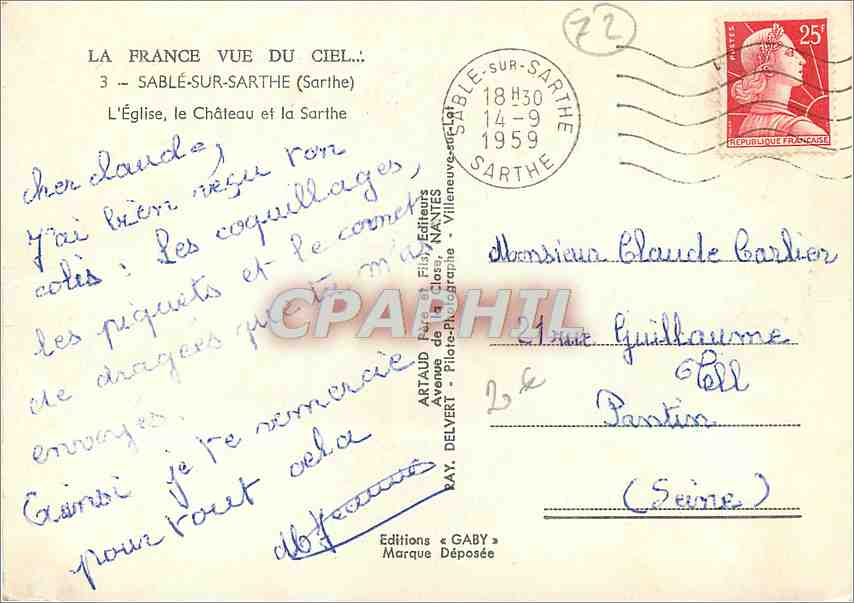 LA FRANCE VUE DU CIEL...
3 — SABLÉ-SUR-SARTHE (Sarthe)
L'Église, le Château et la Sarthe
cher Claude,
J'ai bien reçu ton
colis : Les coquillages,
les piquets et le cornet
de dragées que tu m'as
envoyés.
Ainsi je te remercie
pour tout cela
ARTAUD Père et Fils, Editeurs
Avenue de la Close, NANTES
RAY. DELVERT - Pilote-Photographe - Villeneuve-sur-Lot
Editions « GABY »
Marque Déposée
72
SABLÉ-SUR-SARTHE
18H30
14-9
1959
SARTHE
POSTES
25F
REPUBLIQUE FRANÇAISE
Monsieur Claude Carlier
21 rue Guillaume
Tell
Pantin
(Seine)
2€
CPAPHIL